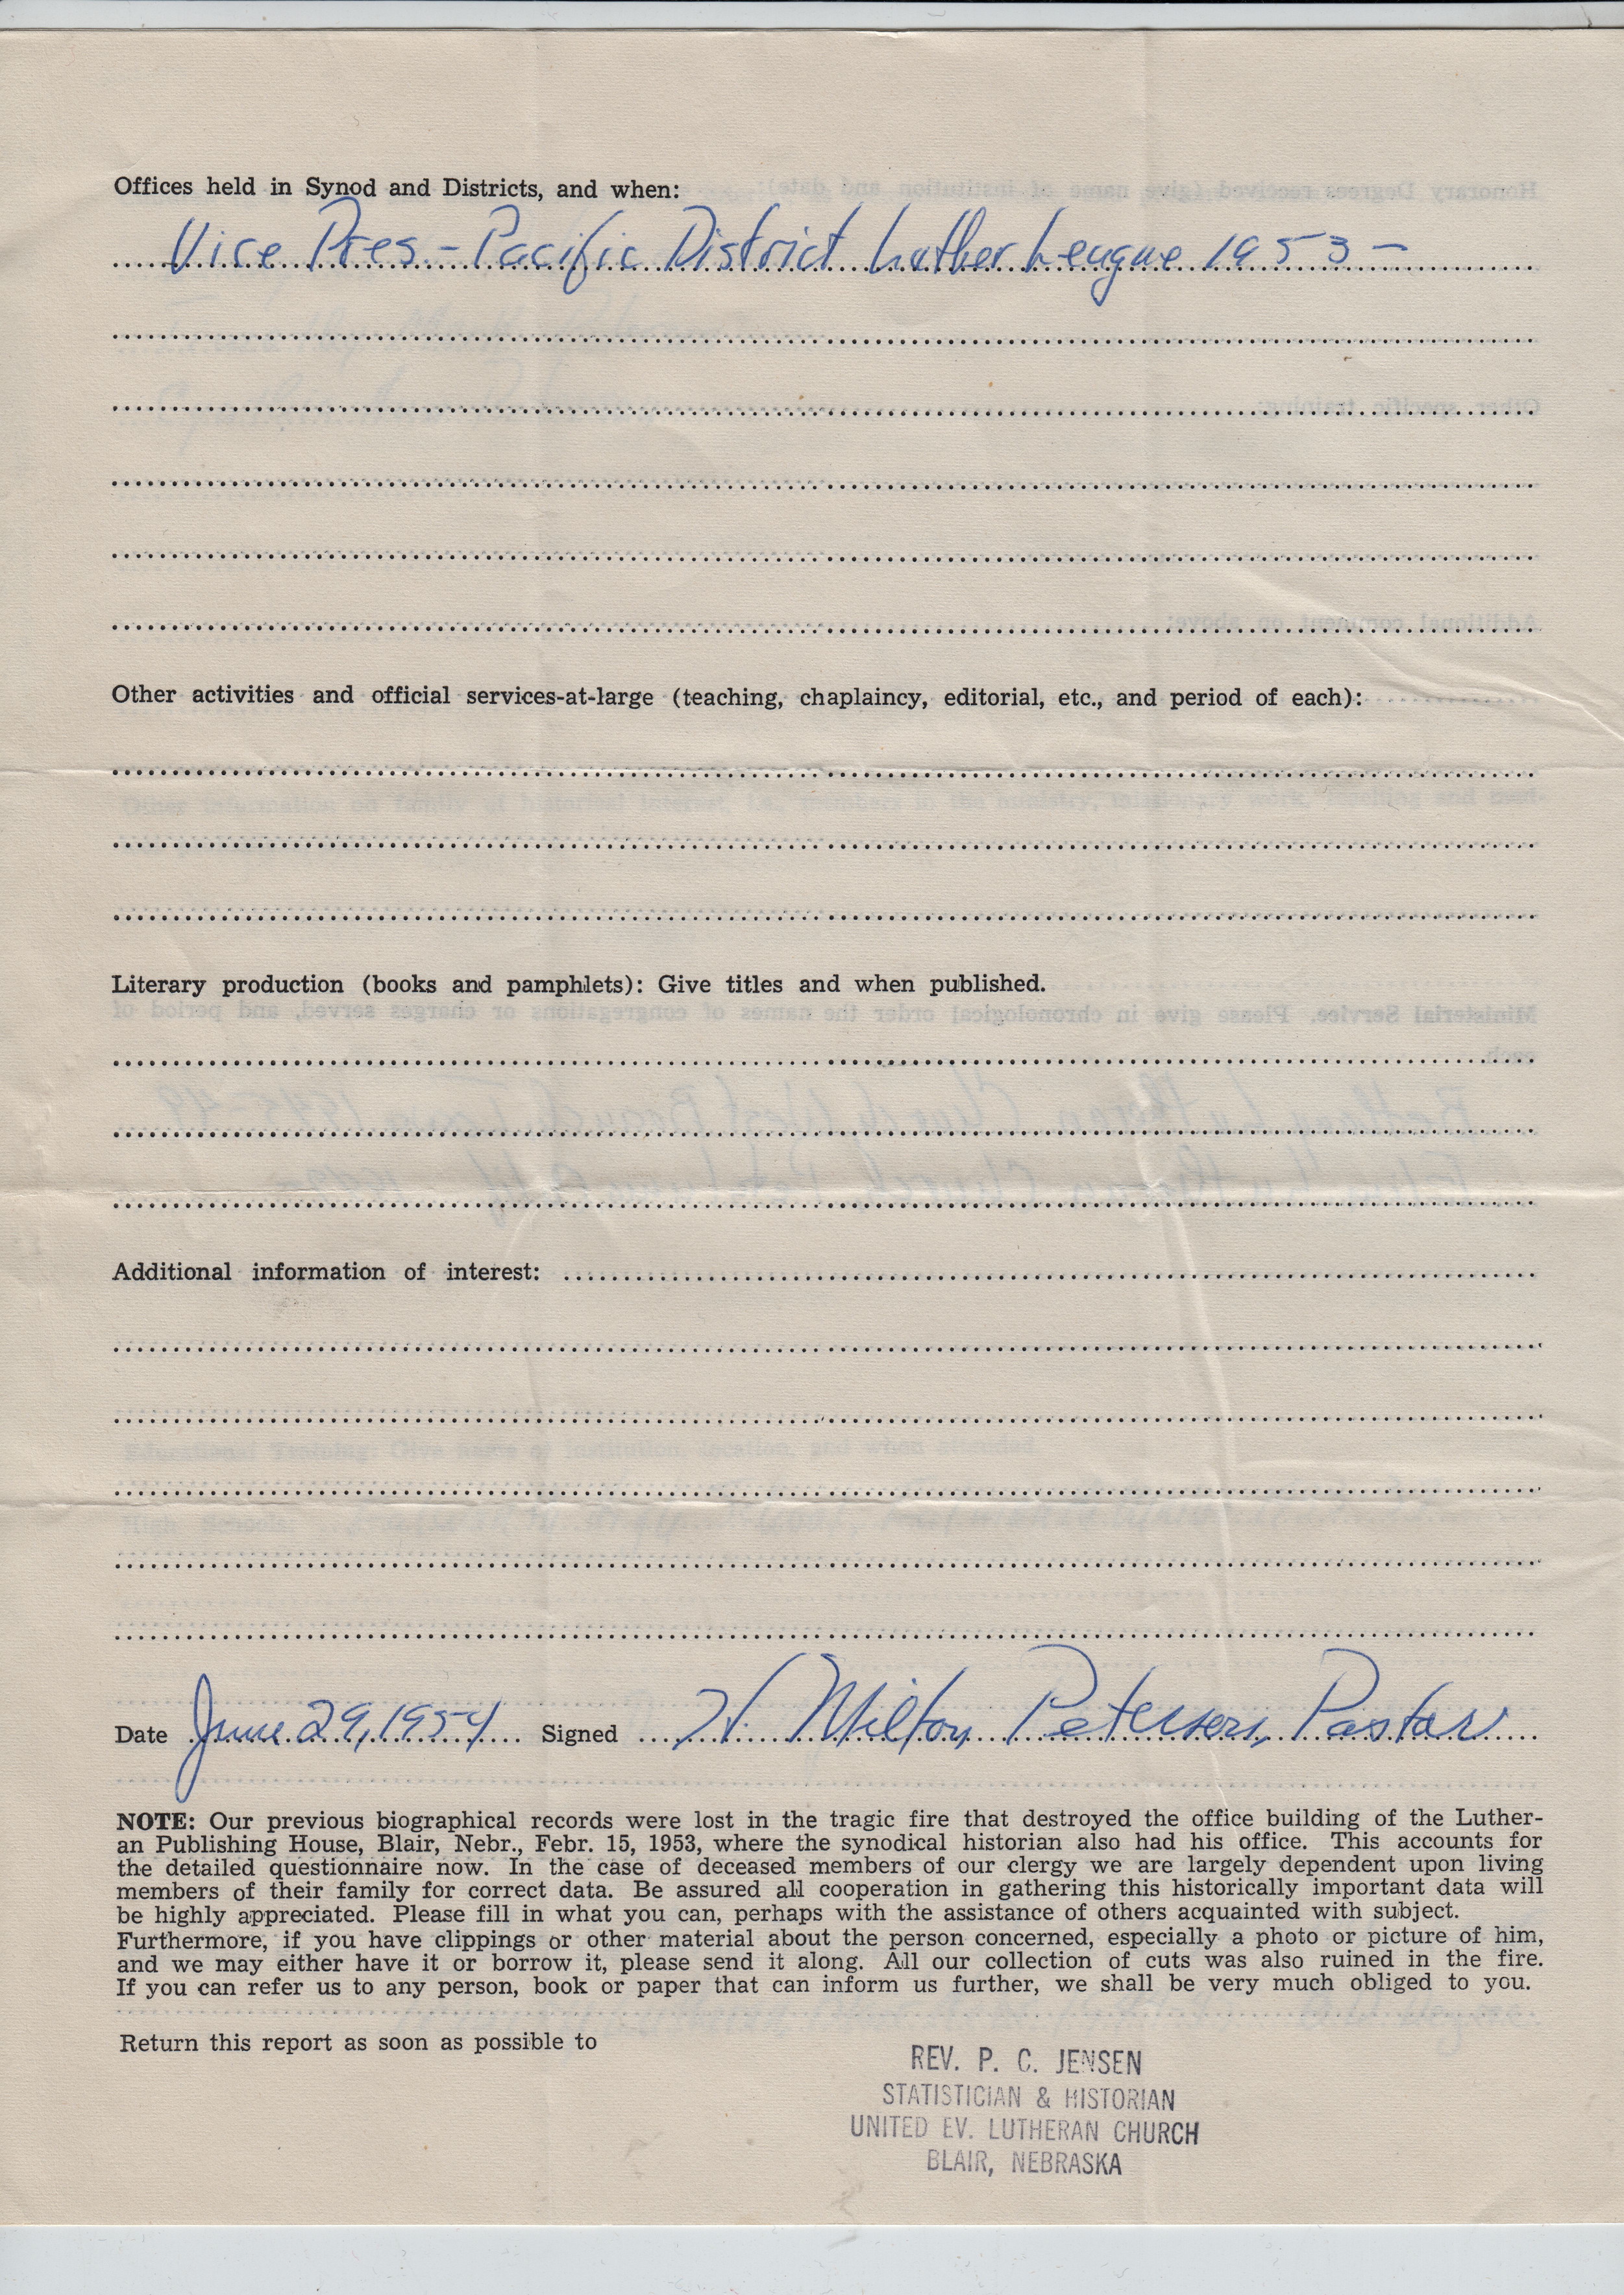 Offices held in Synod and Districts, and when:
Vice Pres - Pacific District Luther League 1953 -
Other activities and official services-at-large (teaching, chaplaincy, editorial, etc., and period of each):
Literary production (books and pamphlets): Give titles and when published.
Additional information of interest:
Date June 29, 1954 Signed H. Milton Petersen, Pastor
NOTE: Our previous biographical records were lost in the tragic fire that destroyed the office building of the Luther-
an Publishing House, Blair, Nebr., Febr. 15, 1953, where the synodical historian also had his office. This accounts for
the detailed questionnaire now. In the case of deceased members of our clergy we are largely dependent upon living
members of their family for correct data. Be assured all cooperation in gathering this historically important data will
be highly appreciated. Please fill in what you can, perhaps with the assistance of others acquainted with subject.
Furthermore, if you have clippings or other material about the person concerned, especially a photo or picture of him,
and we may either have it or borrow it, please send it along. All our collection of cuts was also ruined in the fire.
If you can refer us to any person, book or paper that can inform us further, we shall be very much obliged to you.
Return this report as soon as possible to
REV. P. C. JENSEN
STATISTICIAN & HISTORIAN
UNITED EV. LUTHERAN CHURCH
BLAIR, NEBRASKA